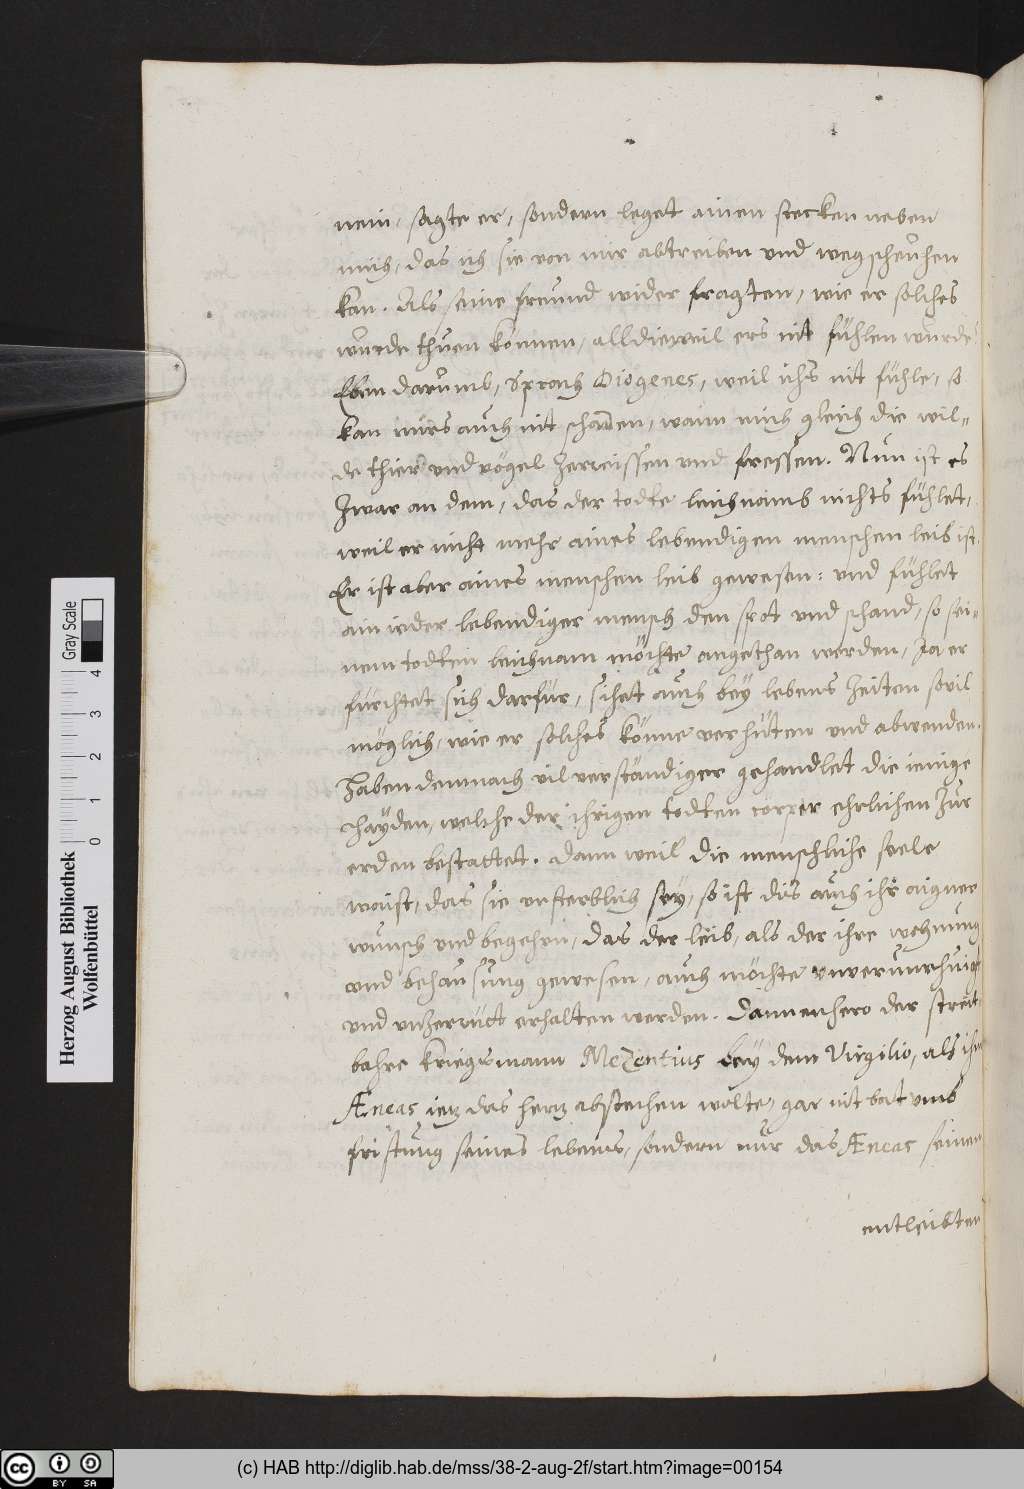 nein, sagte er, sondern leget ainen stecken neben
mich, das ich sie von mir abtreiben und wegscheuhen
kan. Als seine freund wider fragten, wie er solches
wurde thuen können, alldieweil ers nit fühlen wurde
Eben darumb, Sprach Diogenes, weil ichs nit fühle, so
kan mirs auch nit schaden, wann mich gleich die wil-
de thier und vögel zerreissen und fressen. Nun ist es
zwar an dem, das der todte leichnamb nichts fühlet,
weil er nicht mehr aines lebendigen menschen leib ist.
Er ist aber aines menschen leib gewesen: und fühlet
ain ieder lebendiger mensch den spot und schand, so sei-
nem todten leichnam möchte angethan werden, Ja er
fürchtet sich darfür, sihet auch bey lebens zeiten sovil
möglich, wie er solches könne verhüten und abwenden.
Haben demnach vil verständiger gehandlet die ienige
Hayden, welche der ihrigen todten corper ehrlichen zur
erden bestattet. dann weil die menschliche seele
waist, das sie unsterblich sey, so ist dis auch ihr aigner
wunsch und begehrn, das der leib, als der ihre wohnung
und behausung gewesen, auch möchte unverunruhiget
und unzerrütt erhalten werden. Dannenhero der streit-
bahre kriegsmann Mezentius bey dem Virgilio, als ihm
Æneas ietz das hertz abstechen wolte, gar nit bat umb
fristung seines lebens, sondern nur das Æneas seinen
entleibten
Herzog August Bibliothek
Wolfenbüttel
0 1 2 3 4
Gray Scale
cc BY SA
(c) HAB http://diglib.hab.de/mss/38-2-aug-2f/start.htm?image=00154